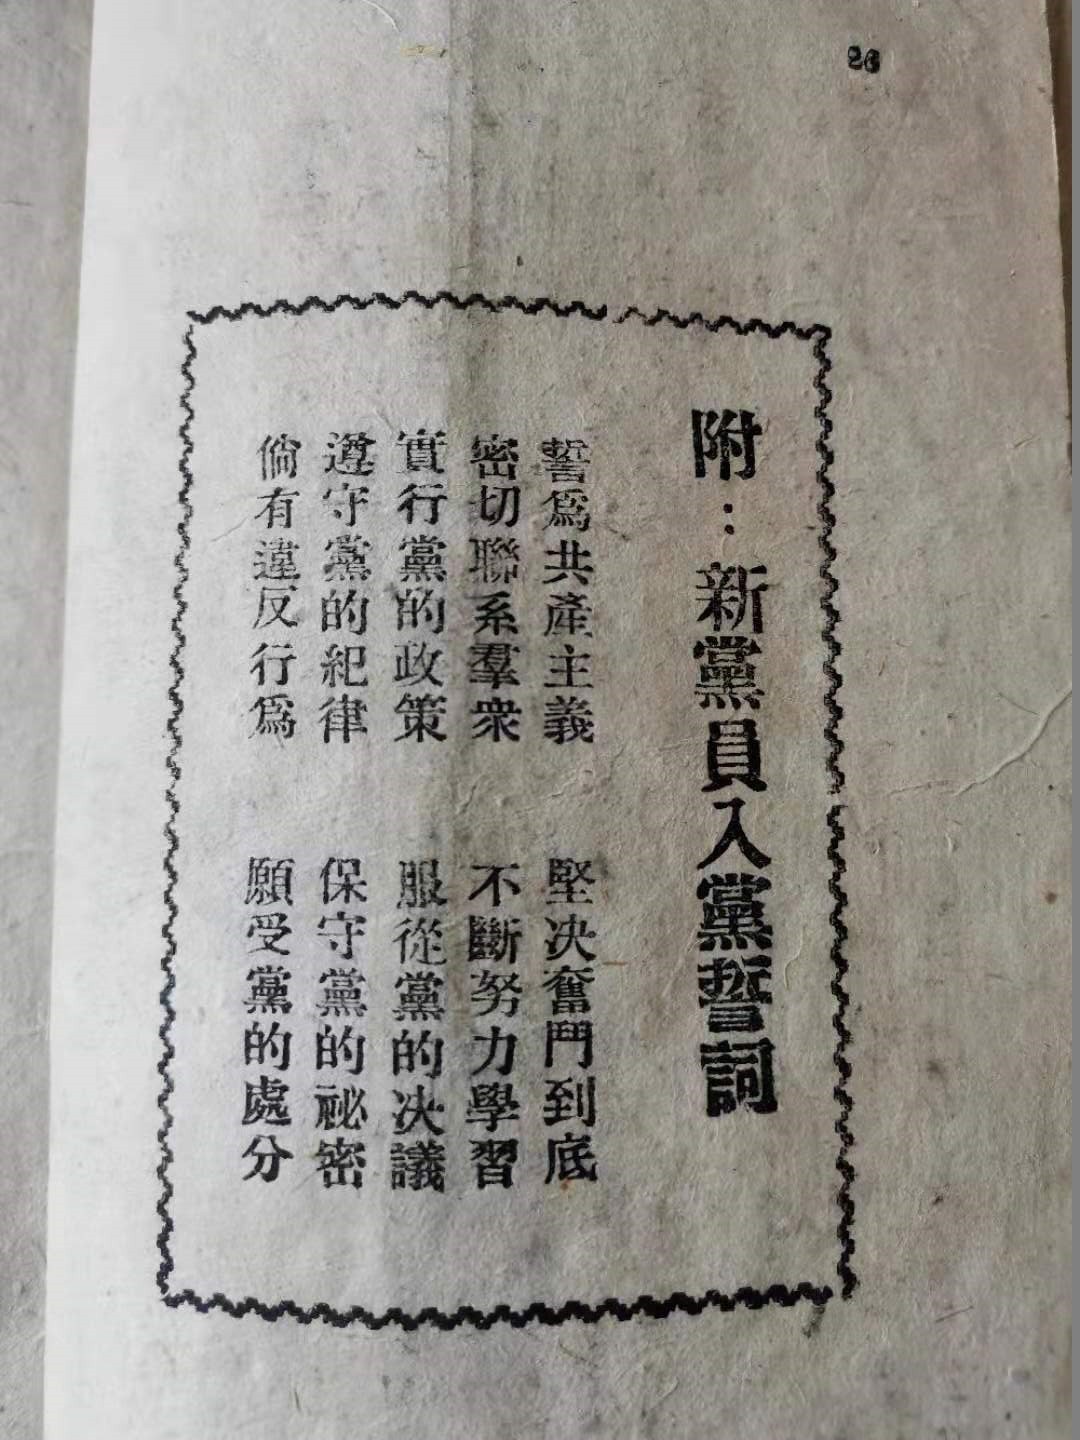 26
附：新黨員入黨誓詞
誓爲共產主義 堅决奮鬥到底
密切聯系羣衆 不斷努力學習
實行黨的政策 服從黨的决議
遵守黨的紀律 保守黨的祕密
倘有違反行爲 願受黨的處分